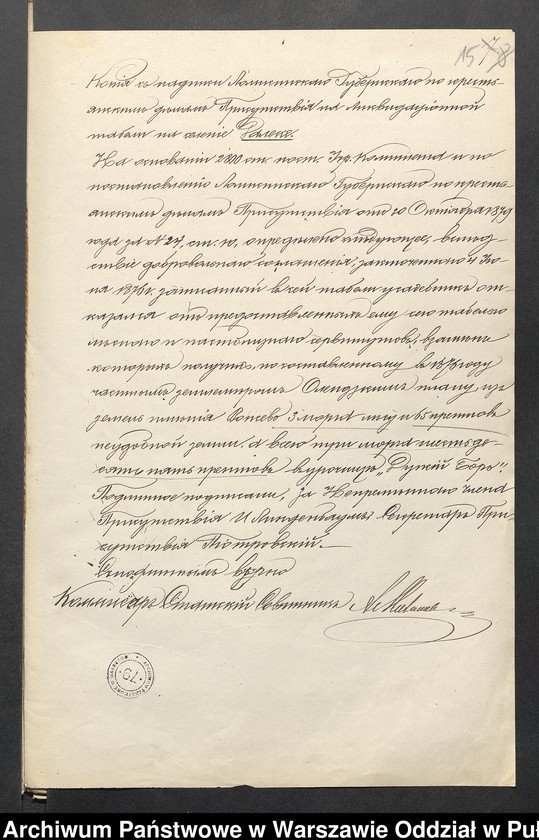 15 7 8
Копія съ надписи Ломжинскаго Губернскаго по кресть-
янскимъ дѣламъ Присутствія на Ликвидаціонной
табели на селеніе
На основаніи 2800 ст. пост. Учр. Комитета и по
постановленію Ломжинскаго Губернскаго по кресть-
янскимъ дѣламъ Присутствія отъ 20 Октября 1879
года за № 24, ст. 10, опредѣлено слѣдующее: вслѣд-
ствіе добровольнаго соглашенія, заключеннаго 4 Ію-
ня 1876 г. записанный въ сей табели усадебникъ от-
казался отъ предоставленныхъ ему сею табелью
лѣснаго и пастбищнаго сервитутовъ, взамѣнъ
которыхъ получилъ, по составленному въ 1876 году
частнымъ землемѣромъ плану, изъ
земель имѣнія 3 морга лѣсу и 65 прентовъ
неудобной земли, а всего три морга шестьде-
сятъ пять прентовъ въ урочищѣ „ Боръ“.
Подлинное подписали: За Непремѣннаго Члена
Присутствія И. Линденбаумъ, Секретарь При-
сутствія Піотровскій.
Съ подлиннымъ вѣрно
Коммисаръ Совѣтникъ
79
Archiwum Państwowe w Warszawie Oddział w Puł